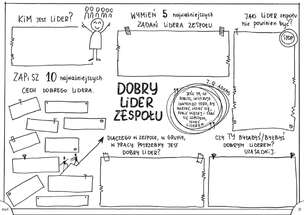 KIM JEST LIDER?
WYMIEŃ 5 najważniejszych
ZADAŃ LIDERA ZESPOŁU
JAKI LIDER zespołu
nie powinien być?
STOP
ZAPISZ 10 najważniejszych
CECH DOBREGO LIDERA.
DOBRY
LIDER
ZESPOŁU
DLACZEGO W ZESPOLE, W GRUPIE,
W PRACY POTRZEBNY JEST
DOBRY LIDER?
CZY TY BYŁABYŚ/BYŁBYŚ
DOBRYM LIDEREM?
UZASADNIJ.